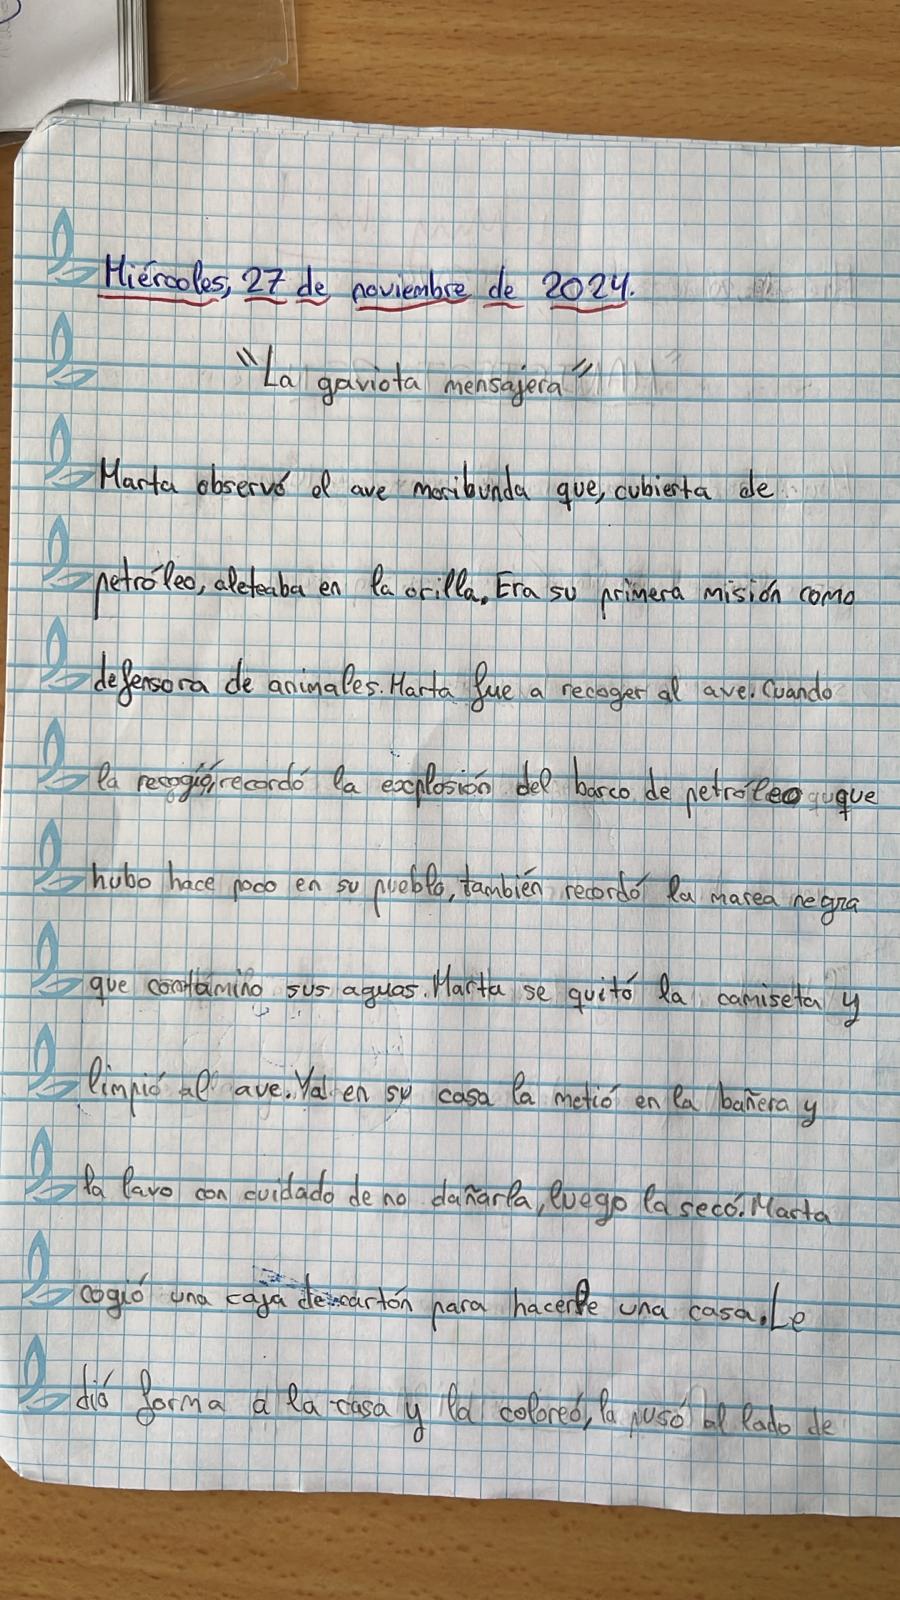 Miércoles, 27 de noviembre de 2024.
"La gaviota mensajera"
Marta observó el ave moribunda que, cubierta de
petróleo, aleteaba en la orilla. Era su primera misión como
defensora de animales. Marta fue a recoger al ave. Cuando
la recogió, recordó la explosión del barco de petróleo que
hubo hace poco en su pueblo, también recordó la marea negra
que contamino sus aguas. Marta se quitó la camiseta y
limpió al ave. Ya en su casa la metió en la bañera y
la lavo con cuidado de no dañarla, luego la secó. Marta
cogió una caja de cartón para hacerle una casa. Le
dió forma a la casa y la coloreó, la pusó al lado de